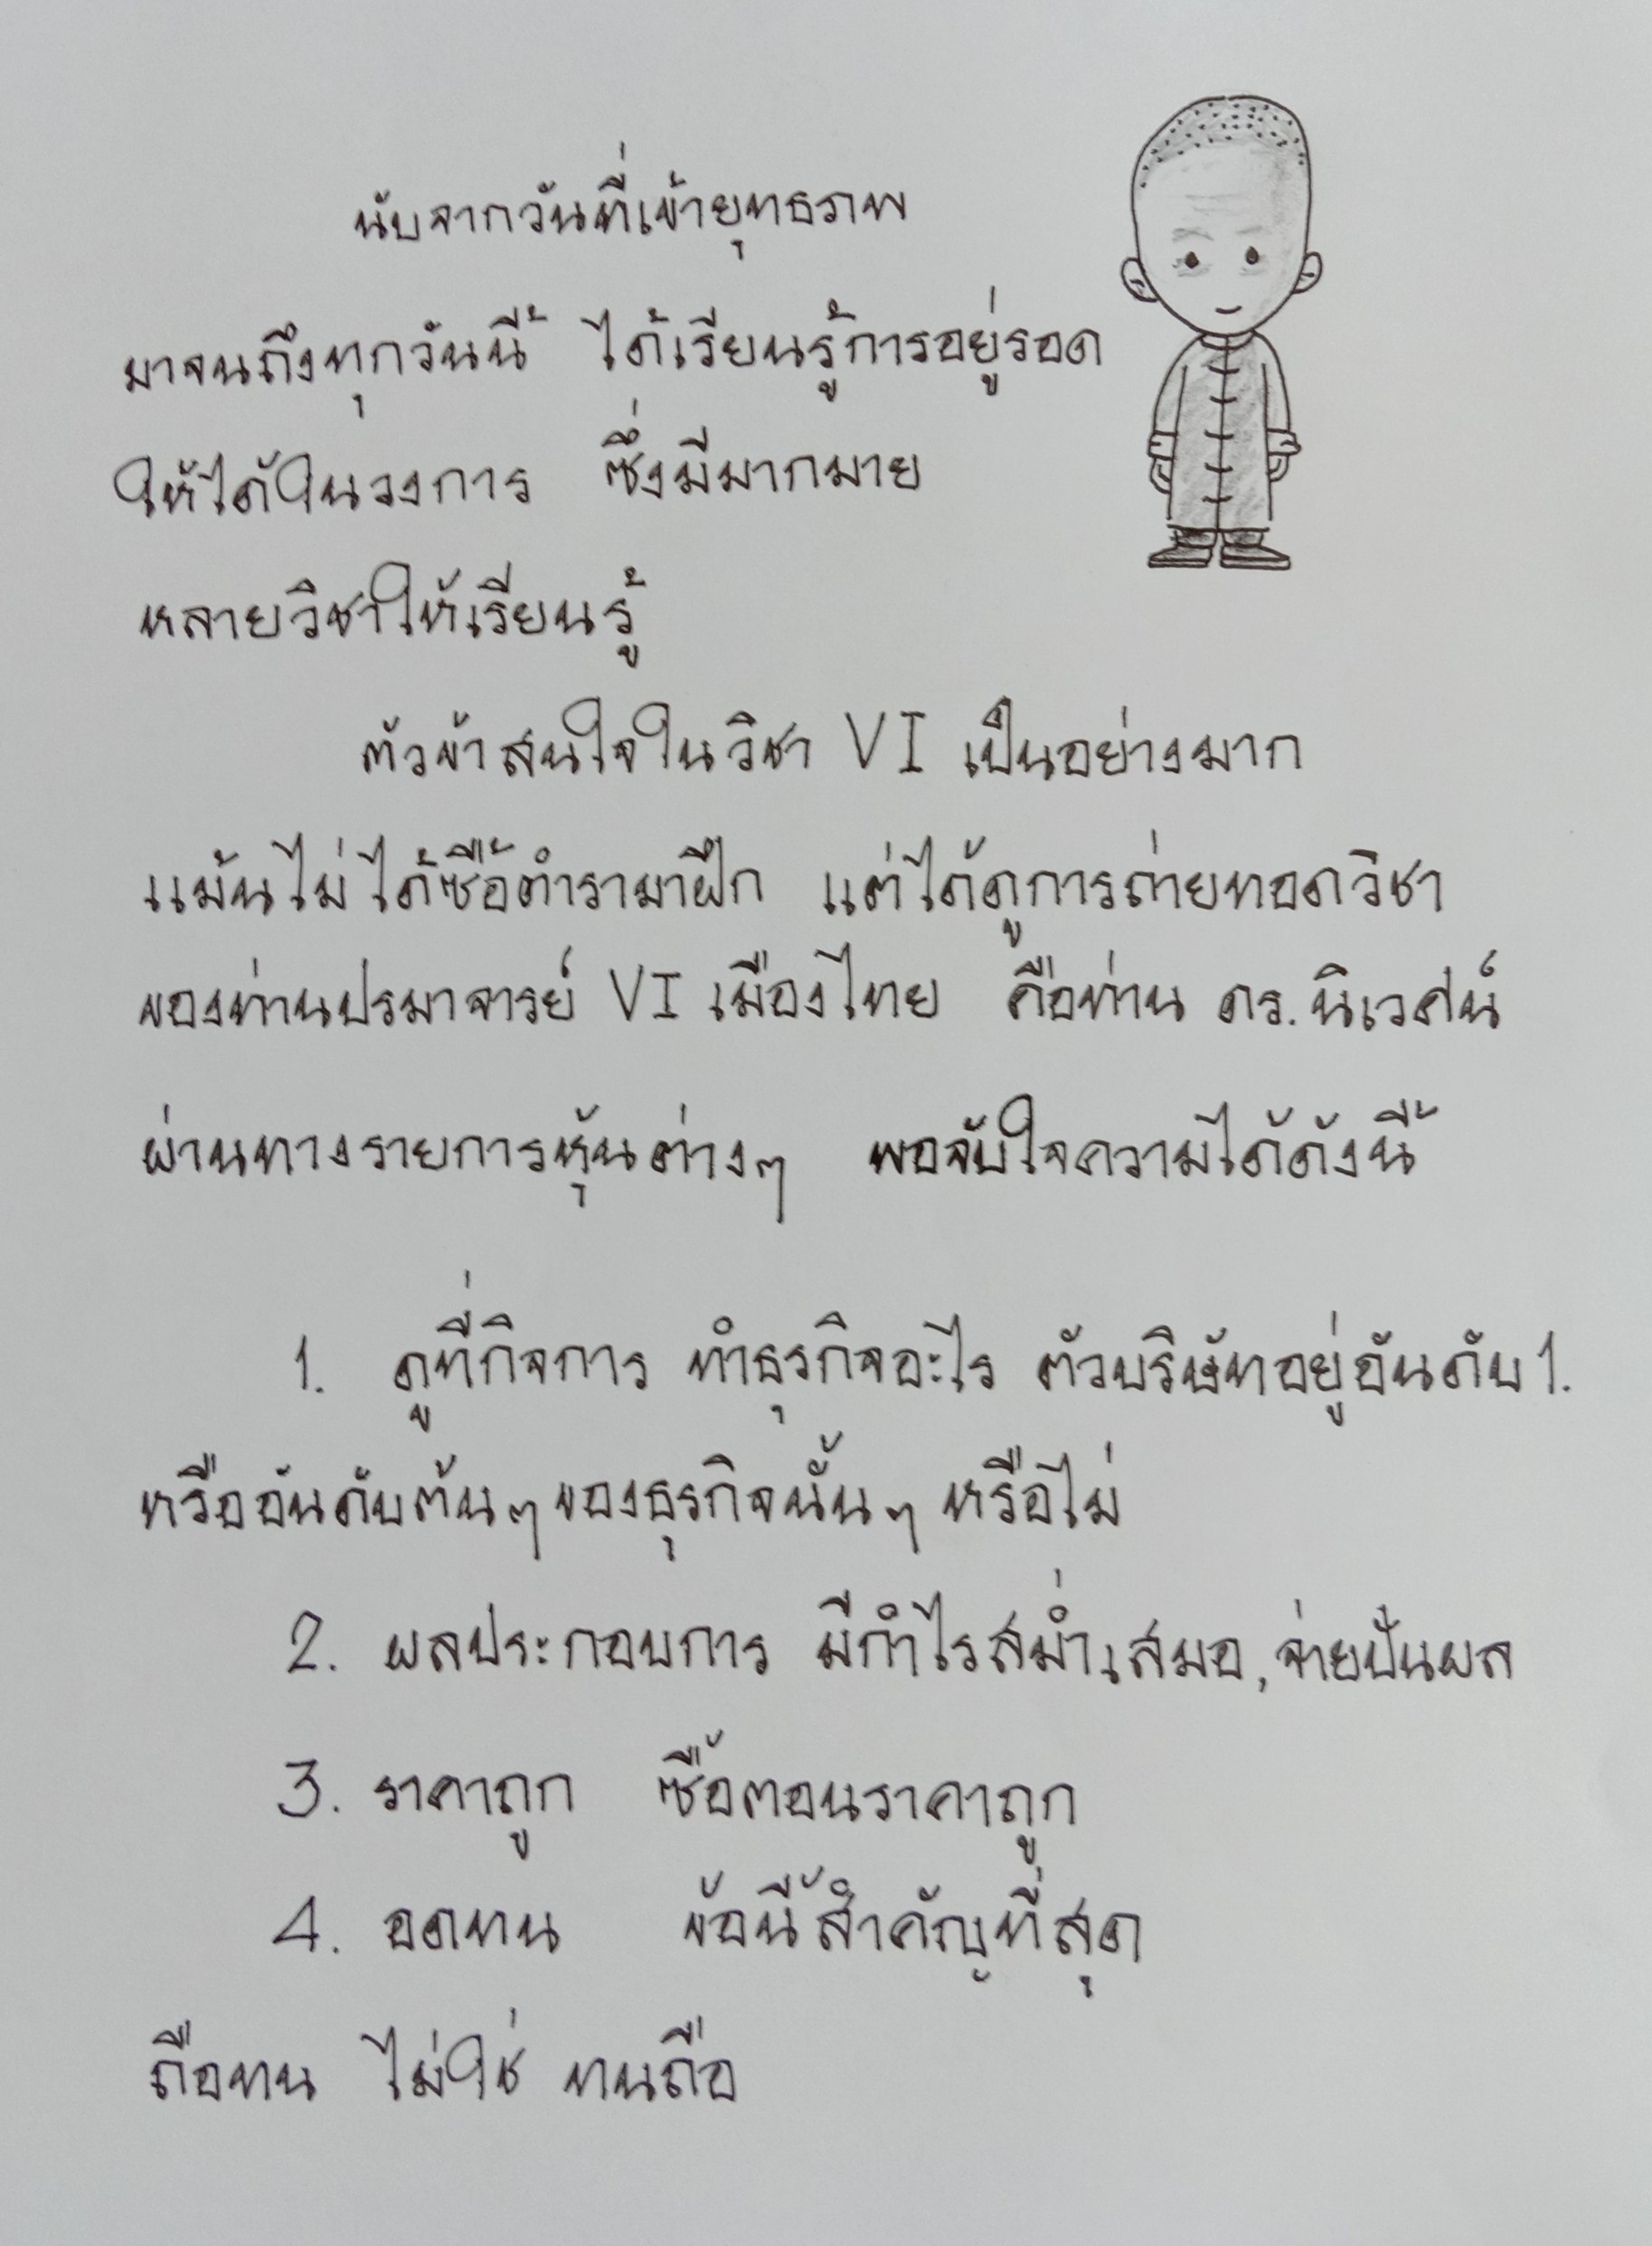 นับจากวันที่เข้ายุทธภพ
มาจนถึงทุกวันนี้ ได้เรียนรู้การอยู่รอด
ให้ได้ในวงการ ซึ่งมีมากมาย
หลายวิชาให้เรียนรู้
ตัวข้าสนใจในวิชา VI เป็นอย่างมาก
แม้นไม่ได้ซื้อตำรามาฝึก แต่ได้ดูการถ่ายทอดวิชา
ของท่านปรมาจารย์ VI เมืองไทย คือท่าน ดร.นิเวศน์
ผ่านทางรายการหุ้นต่างๆ พอจับใจความได้ดังนี้
1. ดูที่กิจการ ทำธุรกิจอะไร ตัวบริษัทอยู่อันดับ 1.
หรืออันดับต้นๆ ของธุรกิจนั้นๆ หรือไม่
2. ผลประกอบการ มีกำไรสม่ำเสมอ, จ่ายปันผล
3. ราคาถูก ซื้อตอนราคาถูก
4. อดทน ข้อนี้สำคัญที่สุด
ถือทน ไม่ใช่ ทนถือ